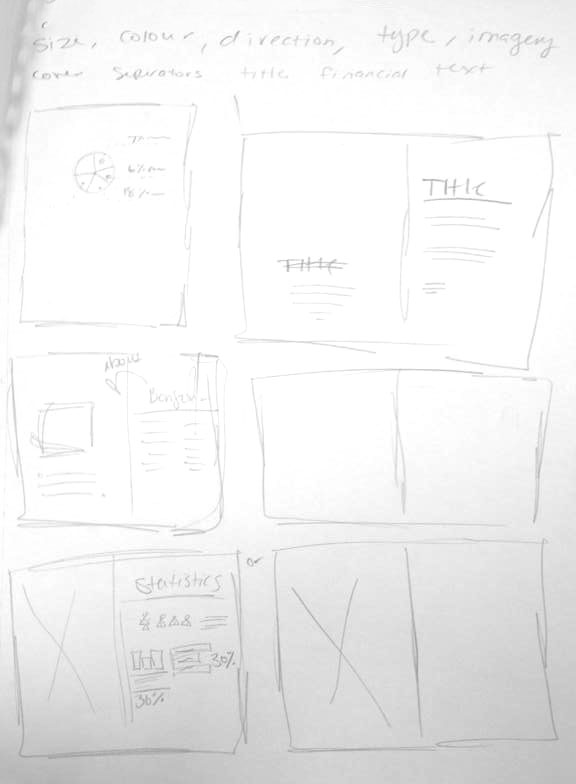 size, colour, direction, type, imagery
cover Seperators title financial text
6%
18%
Title
Title
About
Statistics
30%
36%
or